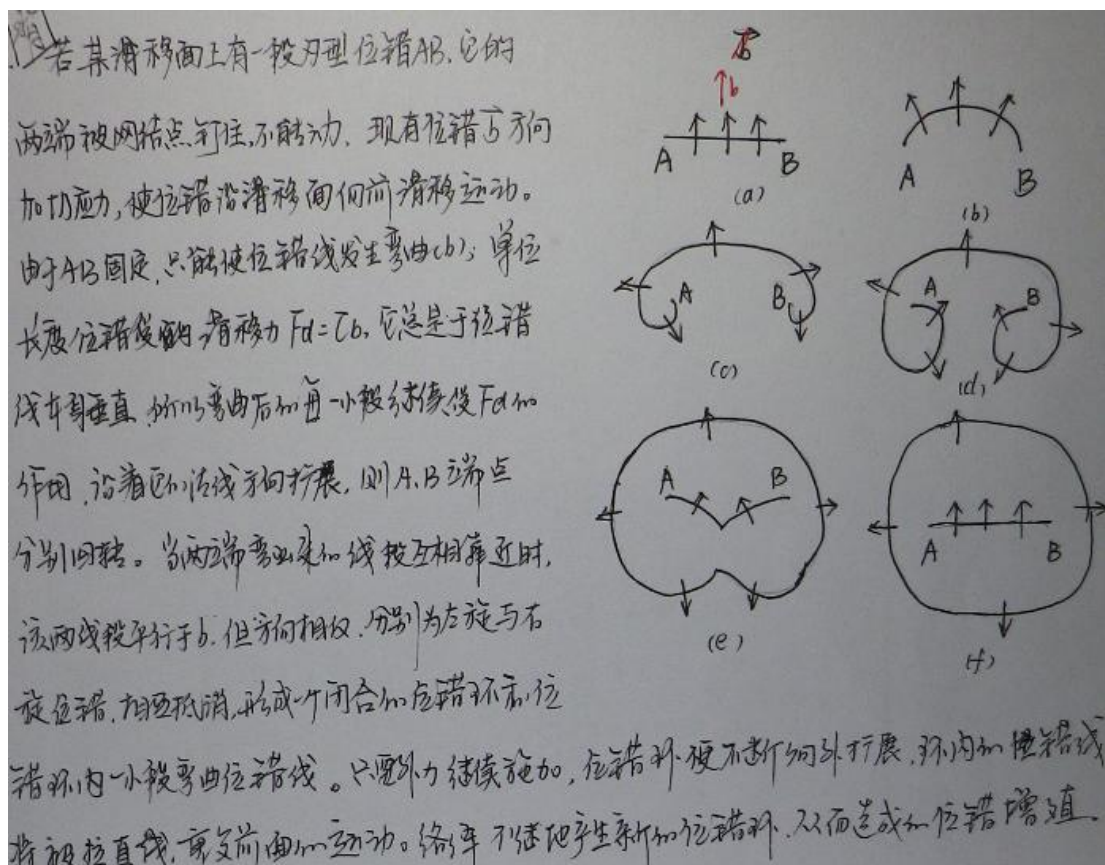 若某滑移面上有一段刃型位错AB,它的
两端被网结点钉住,不能动.现有位错b⃗方向
加切应力,使位错沿滑移面向前滑移运动。
由于AB固定,只能使位错线发生弯曲(b);单位
长度位错线受 滑移力Fd=τb,它总是于位错
线本身垂直,所以弯曲后的每一小段继续受Fd的
作用,沿着它的法线方向扩展,则A、B端点
分别回转。当两端弯出来的线段互相靠近时,
该两线段平行于b,但方向相反,分别为左旋与右
旋位错,相互抵消,形成一个闭合的位错环和位
错环内一小段弯曲位错线。只要外力继续施加,位错环便不断向外扩展,环内的位错线
将被拉直线,重复前面的运动。络绎不绝地产生新的位错环,从而造成的位错增殖.
b⃗
b
A B
(a)
A B
(b)
A B
(c)
A B
(d)
A B
(e)
A B
(f)